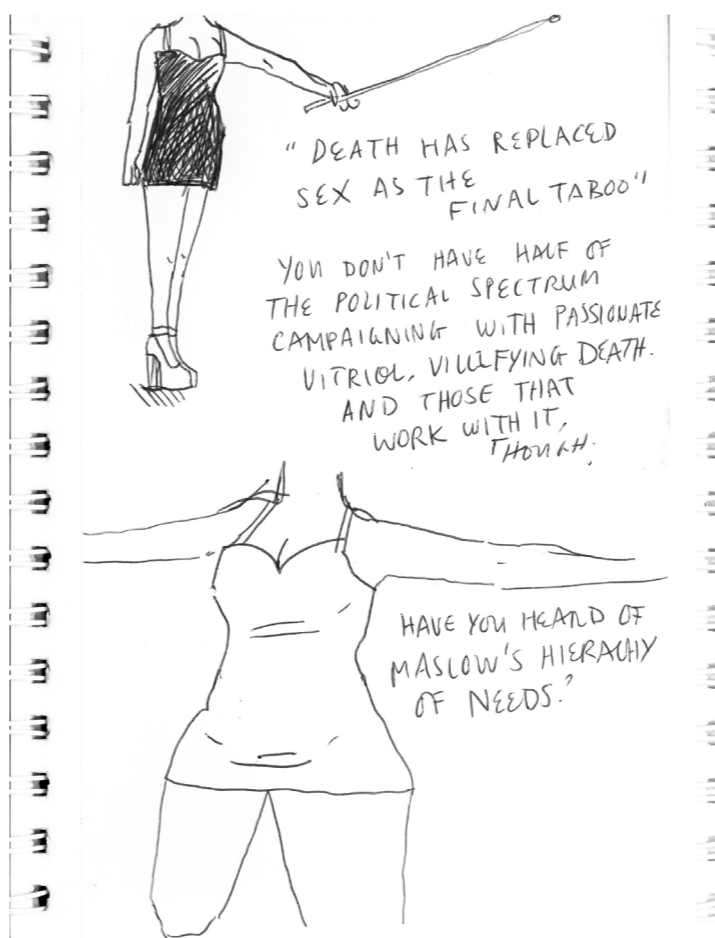 "DEATH HAS REPLACED
SEX AS THE
FINAL TABOO"
YOU DON'T HAVE HALF OF
THE POLITICAL SPECTRUM
CAMPAIGNING WITH PASSIONATE
VITRIOL, VILLIFYING DEATH.
AND THOSE THAT
WORK WITH IT,
THOUGH.
HAVE YOU HEARD OF
MASLOW'S HIERACHY
OF NEEDS?